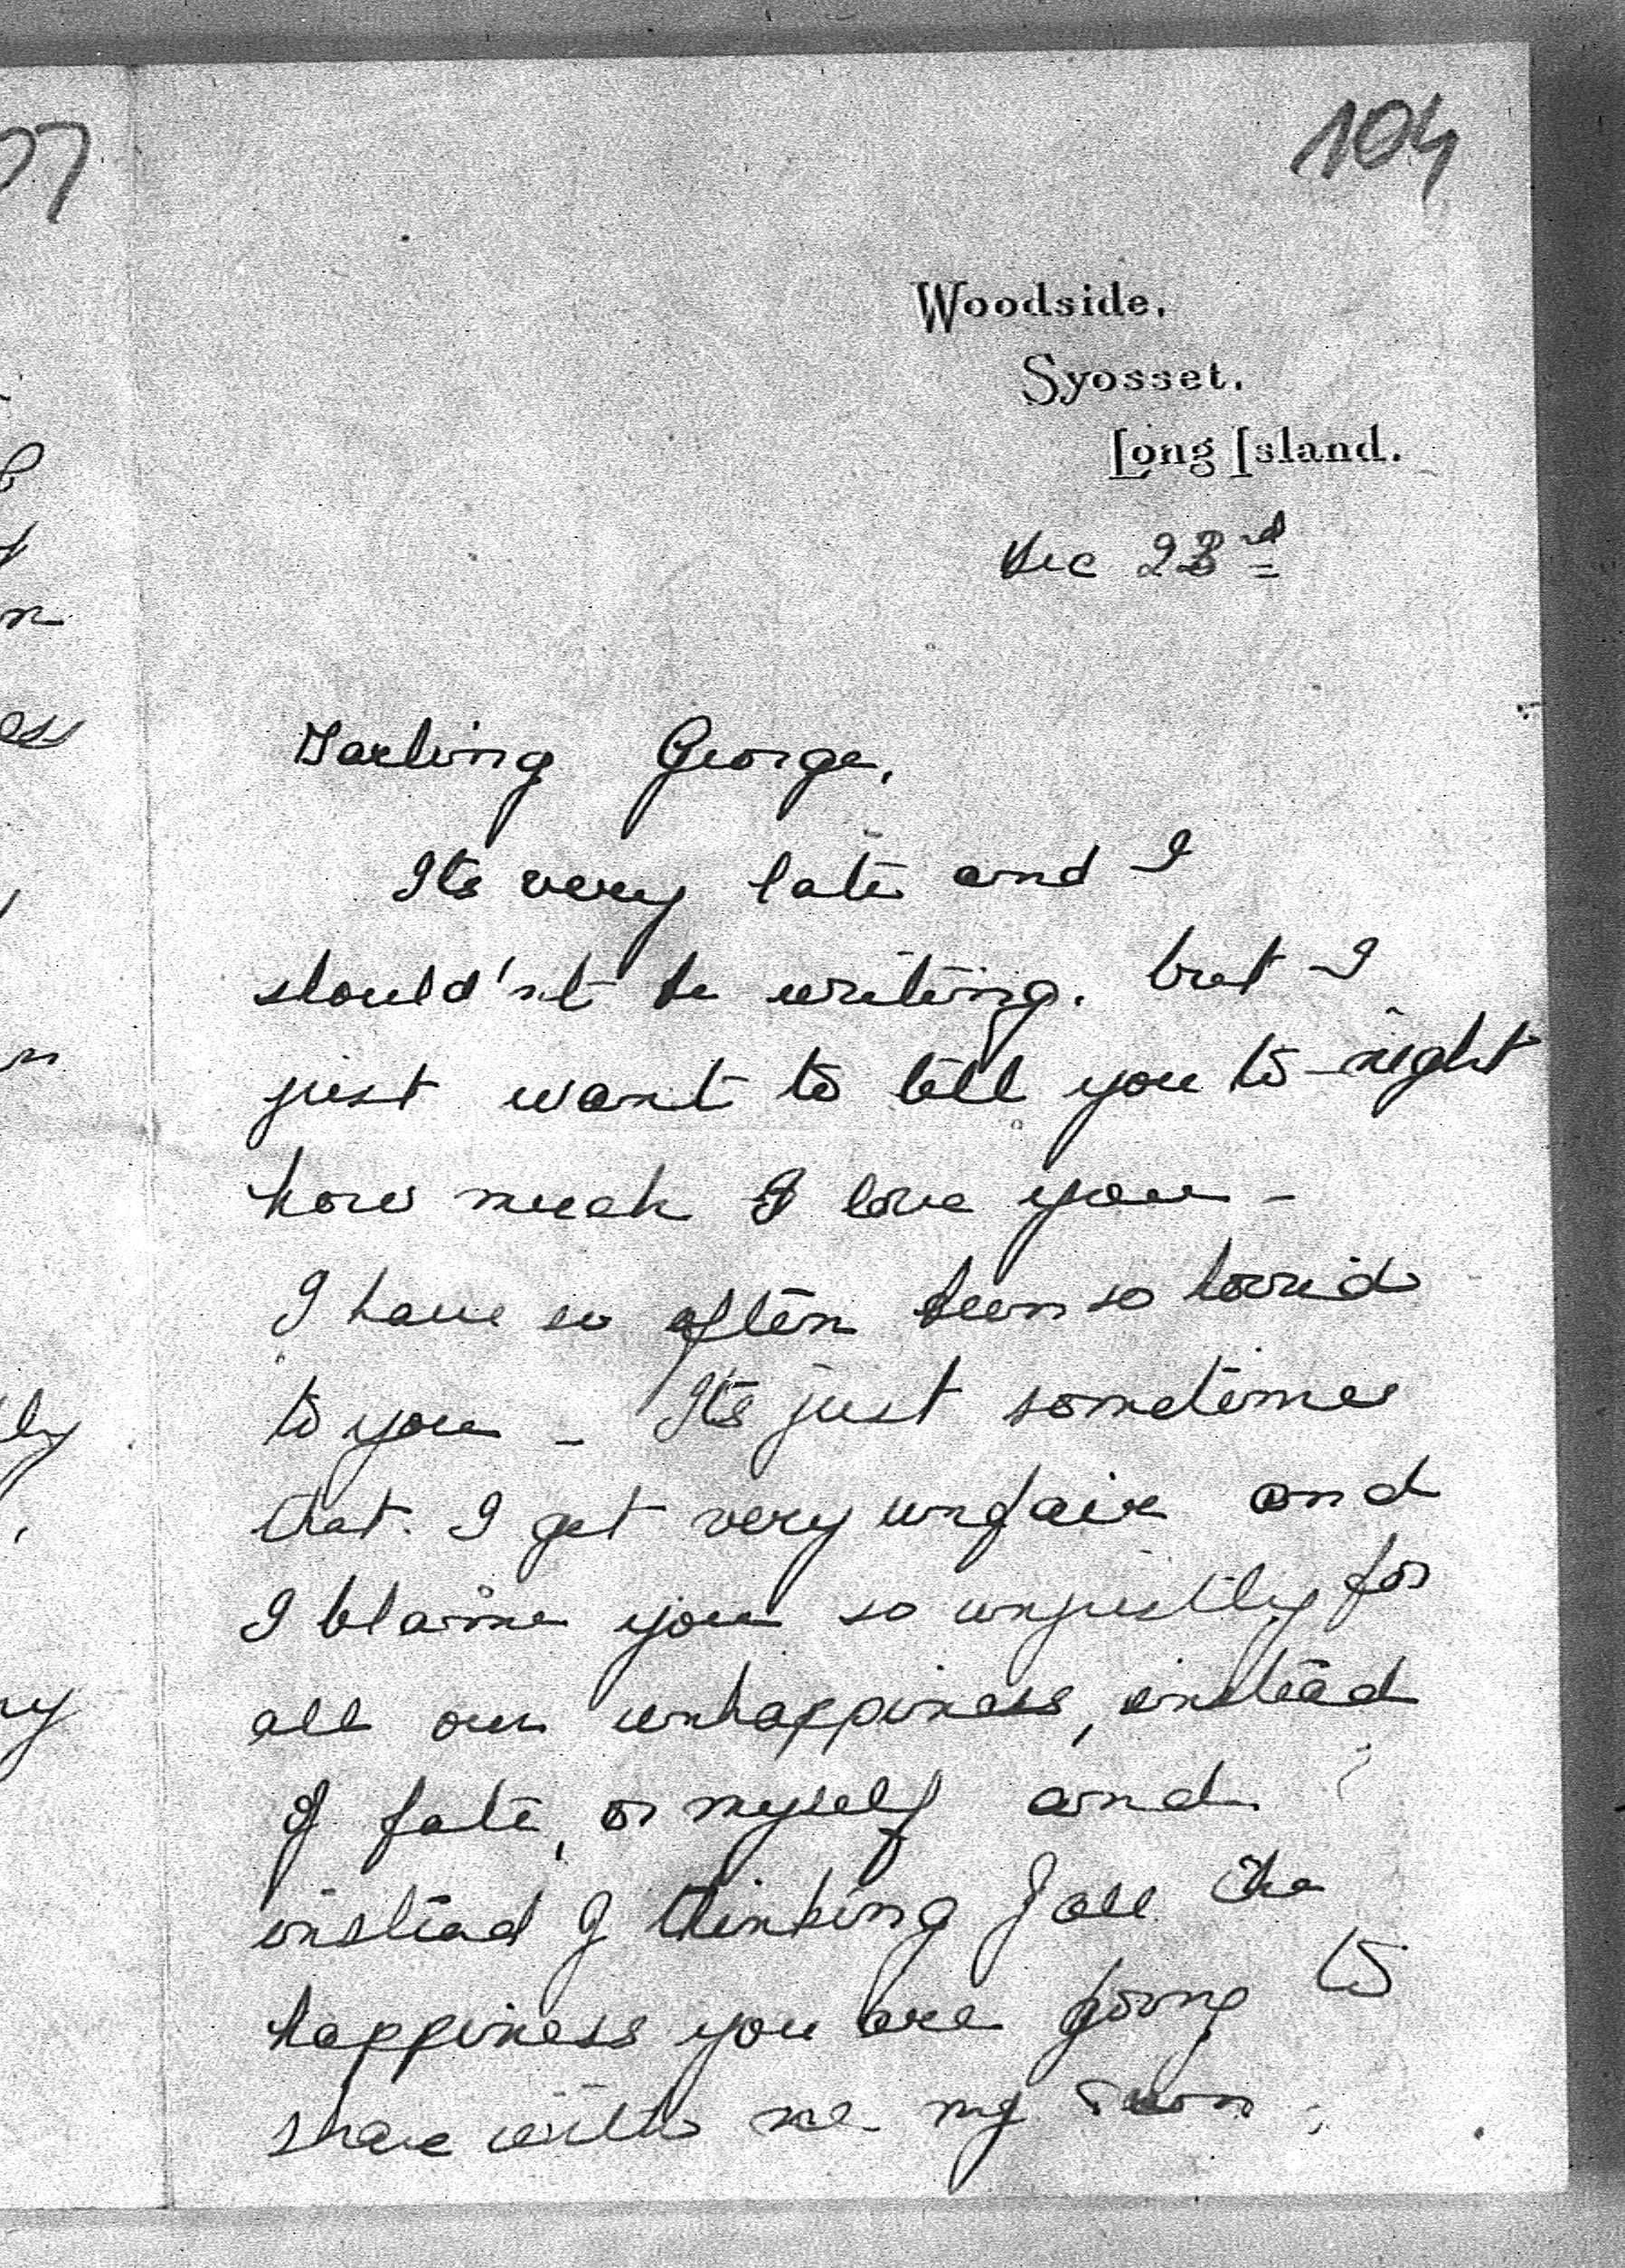 104
Woodside,
Syosset,
Long Island.
Dec 23rd
Darling George,
Its very late and I
should'nt be writing. but I
just want to tell you to-night
how much I love you -
I have so often been so horrid
to you - Its just sometimes
that I get very unfair and
I blame you so unjustly for
all our unhappiness, instead
of fate, or myself and
instead of thinking of all the
happiness you are going to
share with me my own